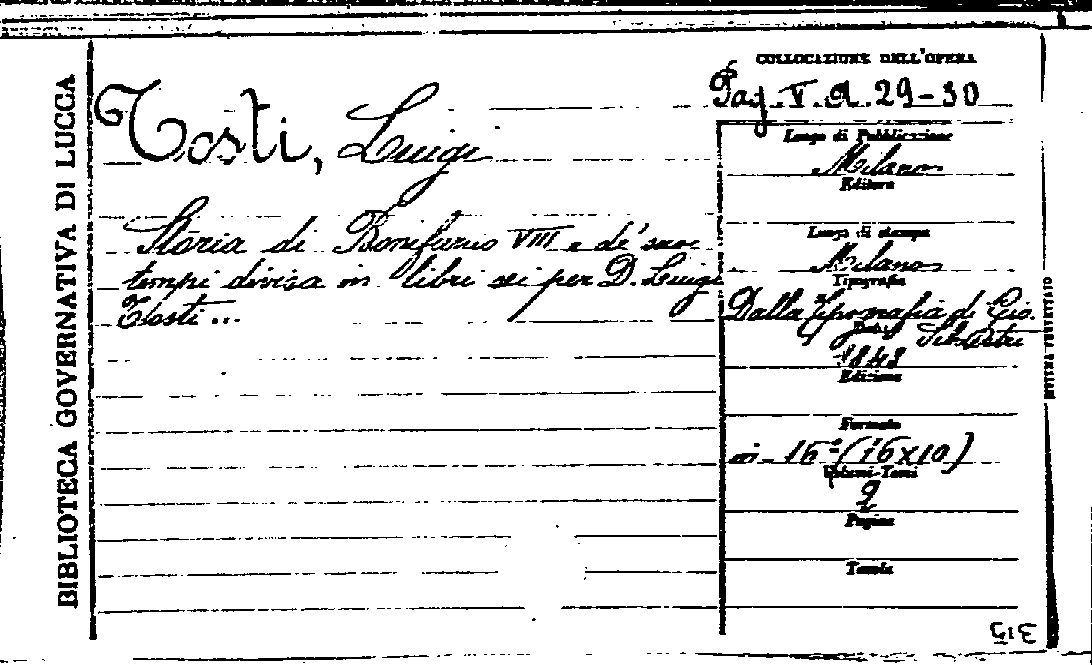 BIBLIOTECA GOVERNATIVA DI LUCCA
Tosti, Luigi
Storia di Bonifazio VIII e de' suoi
tempi divisa in libri sei per D. Luigi
Tosti...
COLLOCAZIONE DELL'OPERA
Pag. V. A. 29-30
Luogo di Pubblicazione
Milano
Editore
Luogo di stampa
Milano
Tipografia
Dalla Tipografia di Gio.
Silvestri
Data
1848
Edizione
Formato
in-16° (16x10)
Volumi-Tomi
2
Pagine
Tavole